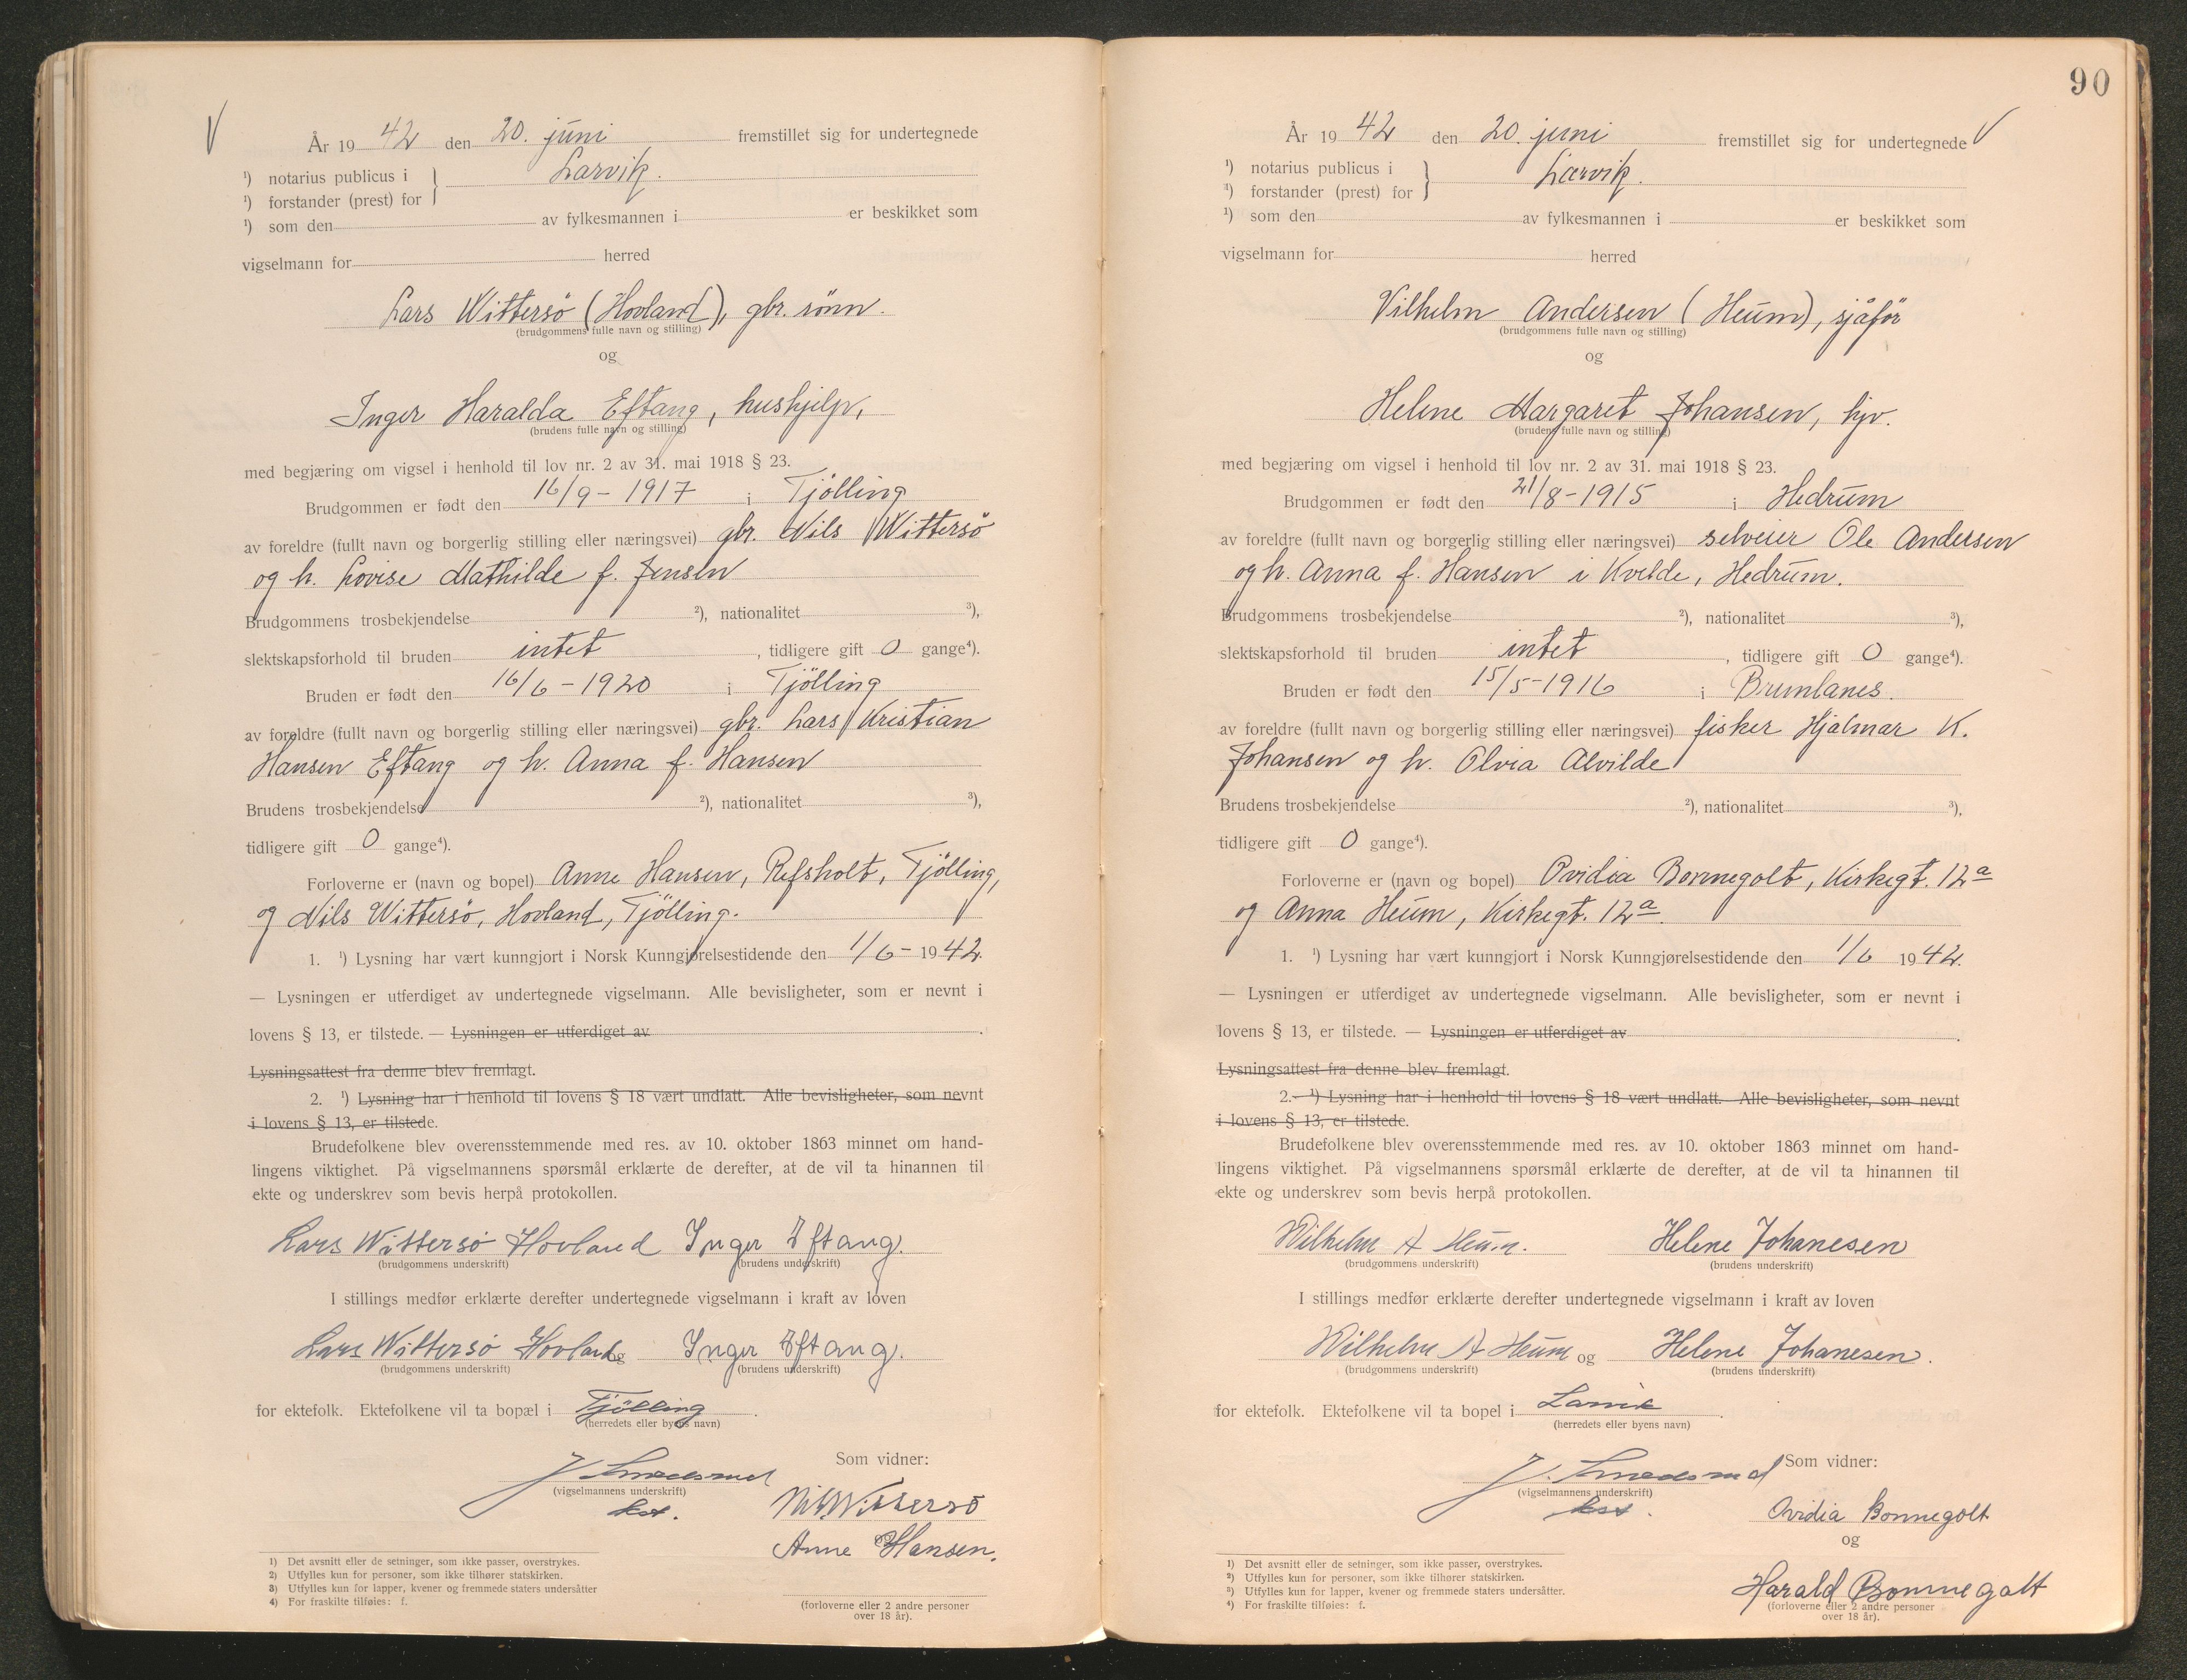 År 19 42 den 20. juni fremstillet sig for undertegnede
¹) notarius publicus i } Larvik.
¹) forstander (prest) for
¹) som den av fylkesmannen i er beskikket som
vigselmann for herred
Lars Wittersö (Hovland), gbr. sönn.
(brudgommens fulle navn og stilling)
og
Inger Haralda Eftang, hushjelp,
(brudens fulle navn og stilling)
med begjæring om vigsel i henhold til lov nr. 2 av 31. mai 1918 § 23.
Brudgommen er født den 16/9 - 1917 i Tjölling
av foreldre (fullt navn og borgerlig stilling eller næringsvei) gbr. Nils Wittersö
og h. Lovise Mathilde f. Jensen
Brudgommens trosbekjendelse ²), nationalitet ³),
slektskapsforhold til bruden intet, tidligere gift 0 gange⁴).
Bruden er født den 16/6 - 1920 i Tjölling
av foreldre (fullt navn og borgerlig stilling eller næringsvei) gbr. Lars Kristian
Hansen Eftang og h. Anna f. Hansen
Brudens trosbekjendelse ²), nationalitet ³),
tidligere gift 0 gange⁴).
Forloverne er (navn og bopel) Anne Hansen, Refsholt, Tjölling,
og Nils Wittersö, Hovland, Tjölling.
1. ¹) Lysning har vært kunngjort i Norsk Kunngjørelsestidende den 1/6 - 1942.
— Lysningen er utferdiget av undertegnede vigselmann. Alle bevisligheter, som er nevnt i
lovens § 13, er tilstede. — Lysningen er utferdiget av .
Lysningsattest fra denne blev fremlagt.
2. ¹) Lysning har i henhold til lovens § 18 vært undlatt. Alle bevisligheter, som nevnt
i lovens § 13, er tilstede.
Brudefolkene blev overensstemmende med res. av 10. oktober 1863 minnet om hand-
lingens viktighet. På vigselmannens spørsmål erklærte de derefter, at de vil ta hinannen til
ekte og underskrev som bevis herpå protokollen.
Lars Wittersö Hovland Inger Eftang.
(brudgommens underskrift) (brudens underskrift)
I stillings medfør erklærte derefter undertegnede vigselmann i kraft av loven
Lars Wittersö Hovland og Inger Eftang.
(brudgommens underskrift) (brudens underskrift)
for ektefolk. Ektefolkene vil ta bopæl i Tjölling.
(herredets eller byens navn)
Som vidner:
J. Smedsrud
(vigselmannens underskrift)
kst.
Nils Wittersö
Anne Hansen.
og
(forloverne eller 2 andre personer
over 18 år).
1) Det avsnitt eller de setninger, som ikke passer, overstrykes.
2) Utfylles kun for personer, som ikke tilhører statskirken.
3) Utfylles kun for lapper, kvener og fremmede staters undersåtter
4) For fraskilte tilføies: f.
90
År 19 42 den 20. juni fremstillet sig for undertegnede
¹) notarius publicus i } Larvik.
¹) forstander (prest) for
¹) som den av fylkesmannen i er beskikket som
vigselmann for herred
Vilhelm Andersen (Heum), sjåför
(brudgommens fulle navn og stilling)
og
Helene Margaret Johansen, hjv.
(brudens fulle navn og stilling)
med begjæring om vigsel i henhold til lov nr. 2 av 31. mai 1918 § 23.
Brudgommen er født den 21/8 - 1915 i Hedrum
av foreldre (fullt navn og borgerlig stilling eller næringsvei) selveier Ole Andersen
og h. Anna f. Hansen i Kvelde, Hedrum.
Brudgommens trosbekjendelse ²), nationalitet ³),
slektskapsforhold til bruden intet, tidligere gift 0 gange⁴).
Bruden er født den 15/5 - 1916 i Brunlanes.
av foreldre (fullt navn og borgerlig stilling eller næringsvei) fisker Hjalmar K.
Johansen og h. Olvia Alvilde
Brudens trosbekjendelse ²), nationalitet ³),
tidligere gift 0 gange⁴).
Forloverne er (navn og bopel) Ovidia Bonnegolt, Kirkegt. 12a
og Anna Heum, Kirkegt. 12a.
1. ¹) Lysning har vært kunngjort i Norsk Kunngjørelsestidende den 1/6 1942.
— Lysningen er utferdiget av undertegnede vigselmann. Alle bevisligheter, som er nevnt i
lovens § 13, er tilstede. — Lysningen er utferdiget av .
Lysningsattest fra denne blev fremlagt.
2. ¹) Lysning har i henhold til lovens § 18 vært undlatt. Alle bevisligheter, som nevnt
i lovens § 13, er tilstede.
Brudefolkene blev overensstemmende med res. av 10. oktober 1863 minnet om hand-
lingens viktighet. På vigselmannens spørsmål erklærte de derefter, at de vil ta hinannen til
ekte og underskrev som bevis herpå protokollen.
Wilhelm A Heum. Helene Johanesen
(brudgommens underskrift) (brudens underskrift)
I stillings medfør erklærte derefter undertegnede vigselmann i kraft av loven
Wilhelm A Heum og Helene Johanesen.
(brudgommens underskrift) (brudens underskrift)
for ektefolk. Ektefolkene vil ta bopel i Larvik.
(herredets eller byens navn)
Som vidner:
J. Smedsrud
(vigselmannens underskrift)
kst.
Ovidia Bonnegolt
og
Harald Bonnegolt
(forloverne eller 2 andre personer
over 18 år).
¹) Det avsnitt eller de setninger, som ikke passer, overstrykes.
²) Utfylles kun for personer, som ikke tilhører statskirken.
³) Utfylles kun for lapper, kvener og fremmede staters undersåtter.
⁴) For fraskilte tilføies: f.